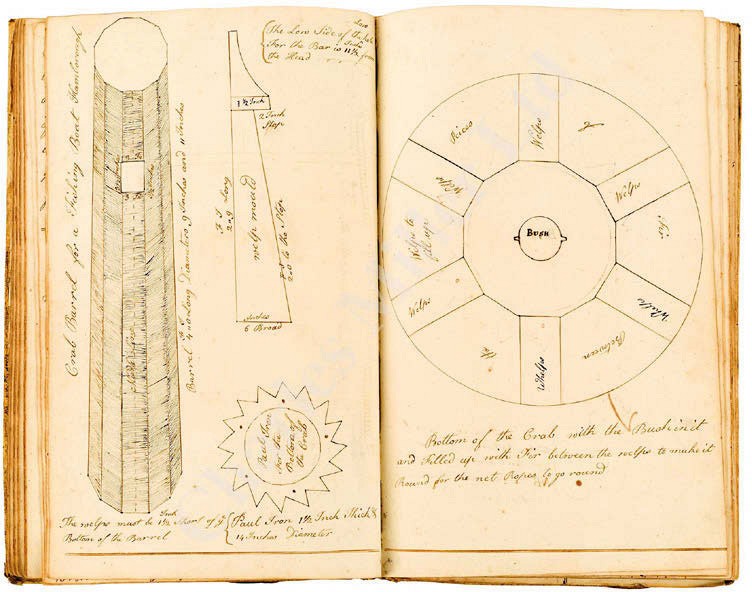 Crab Barrel for a Fishing Boat Flamborough
Barrel 4 F 0 I Long Diameters 9 Inches and 11 Inches
The Low Side of the hole
For the Bar is 11½ Inches from
the Head
1½ Inch
2 Inch
Step
F I
2 = 9 Long
welp mould
2=0 to the Step
Inches
6 Broad
Paul Iron
For the
Bottom of
the Crab
The welps must be 1½ Inch Short of ye
Bottom of the Barrel
Paul Iron 1½ Inch Thick &
14 Inches Diameter
Pieces
Welps
of
Welps
Welps
Fir
Welps to
fill up
BUSH
Welps
Whelps
Between
Whelps
Bottom of the Crab with the Bush in it
and Filled up with Fir between the welps to make it
Round for the net Ropes to go round